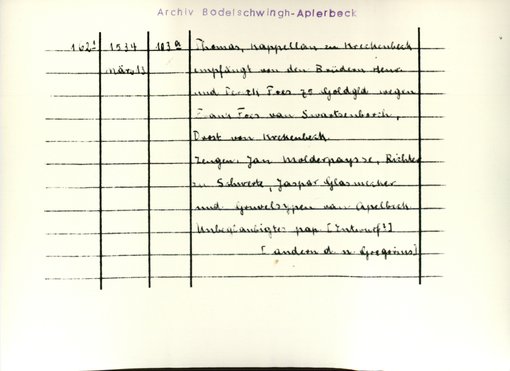 Archiv Bodelschwingh-Aplerbeck
1621 1534 103a Thomas, Kappellan zu Krechenbeck
März 13 empfängt von den Brüdern Henr.
und Foes 75 Goldgld wegen
Foes van Swartenborch,
Drost von Krekenbeck.
Zeugen: Jan Molderpaysse, Richter
zu Schwerte, Jaspar Glasmecher
und van Apelbeck
Unbeglaubigtes pap. [Entwurf?]
[andern d. n. Gregorius]